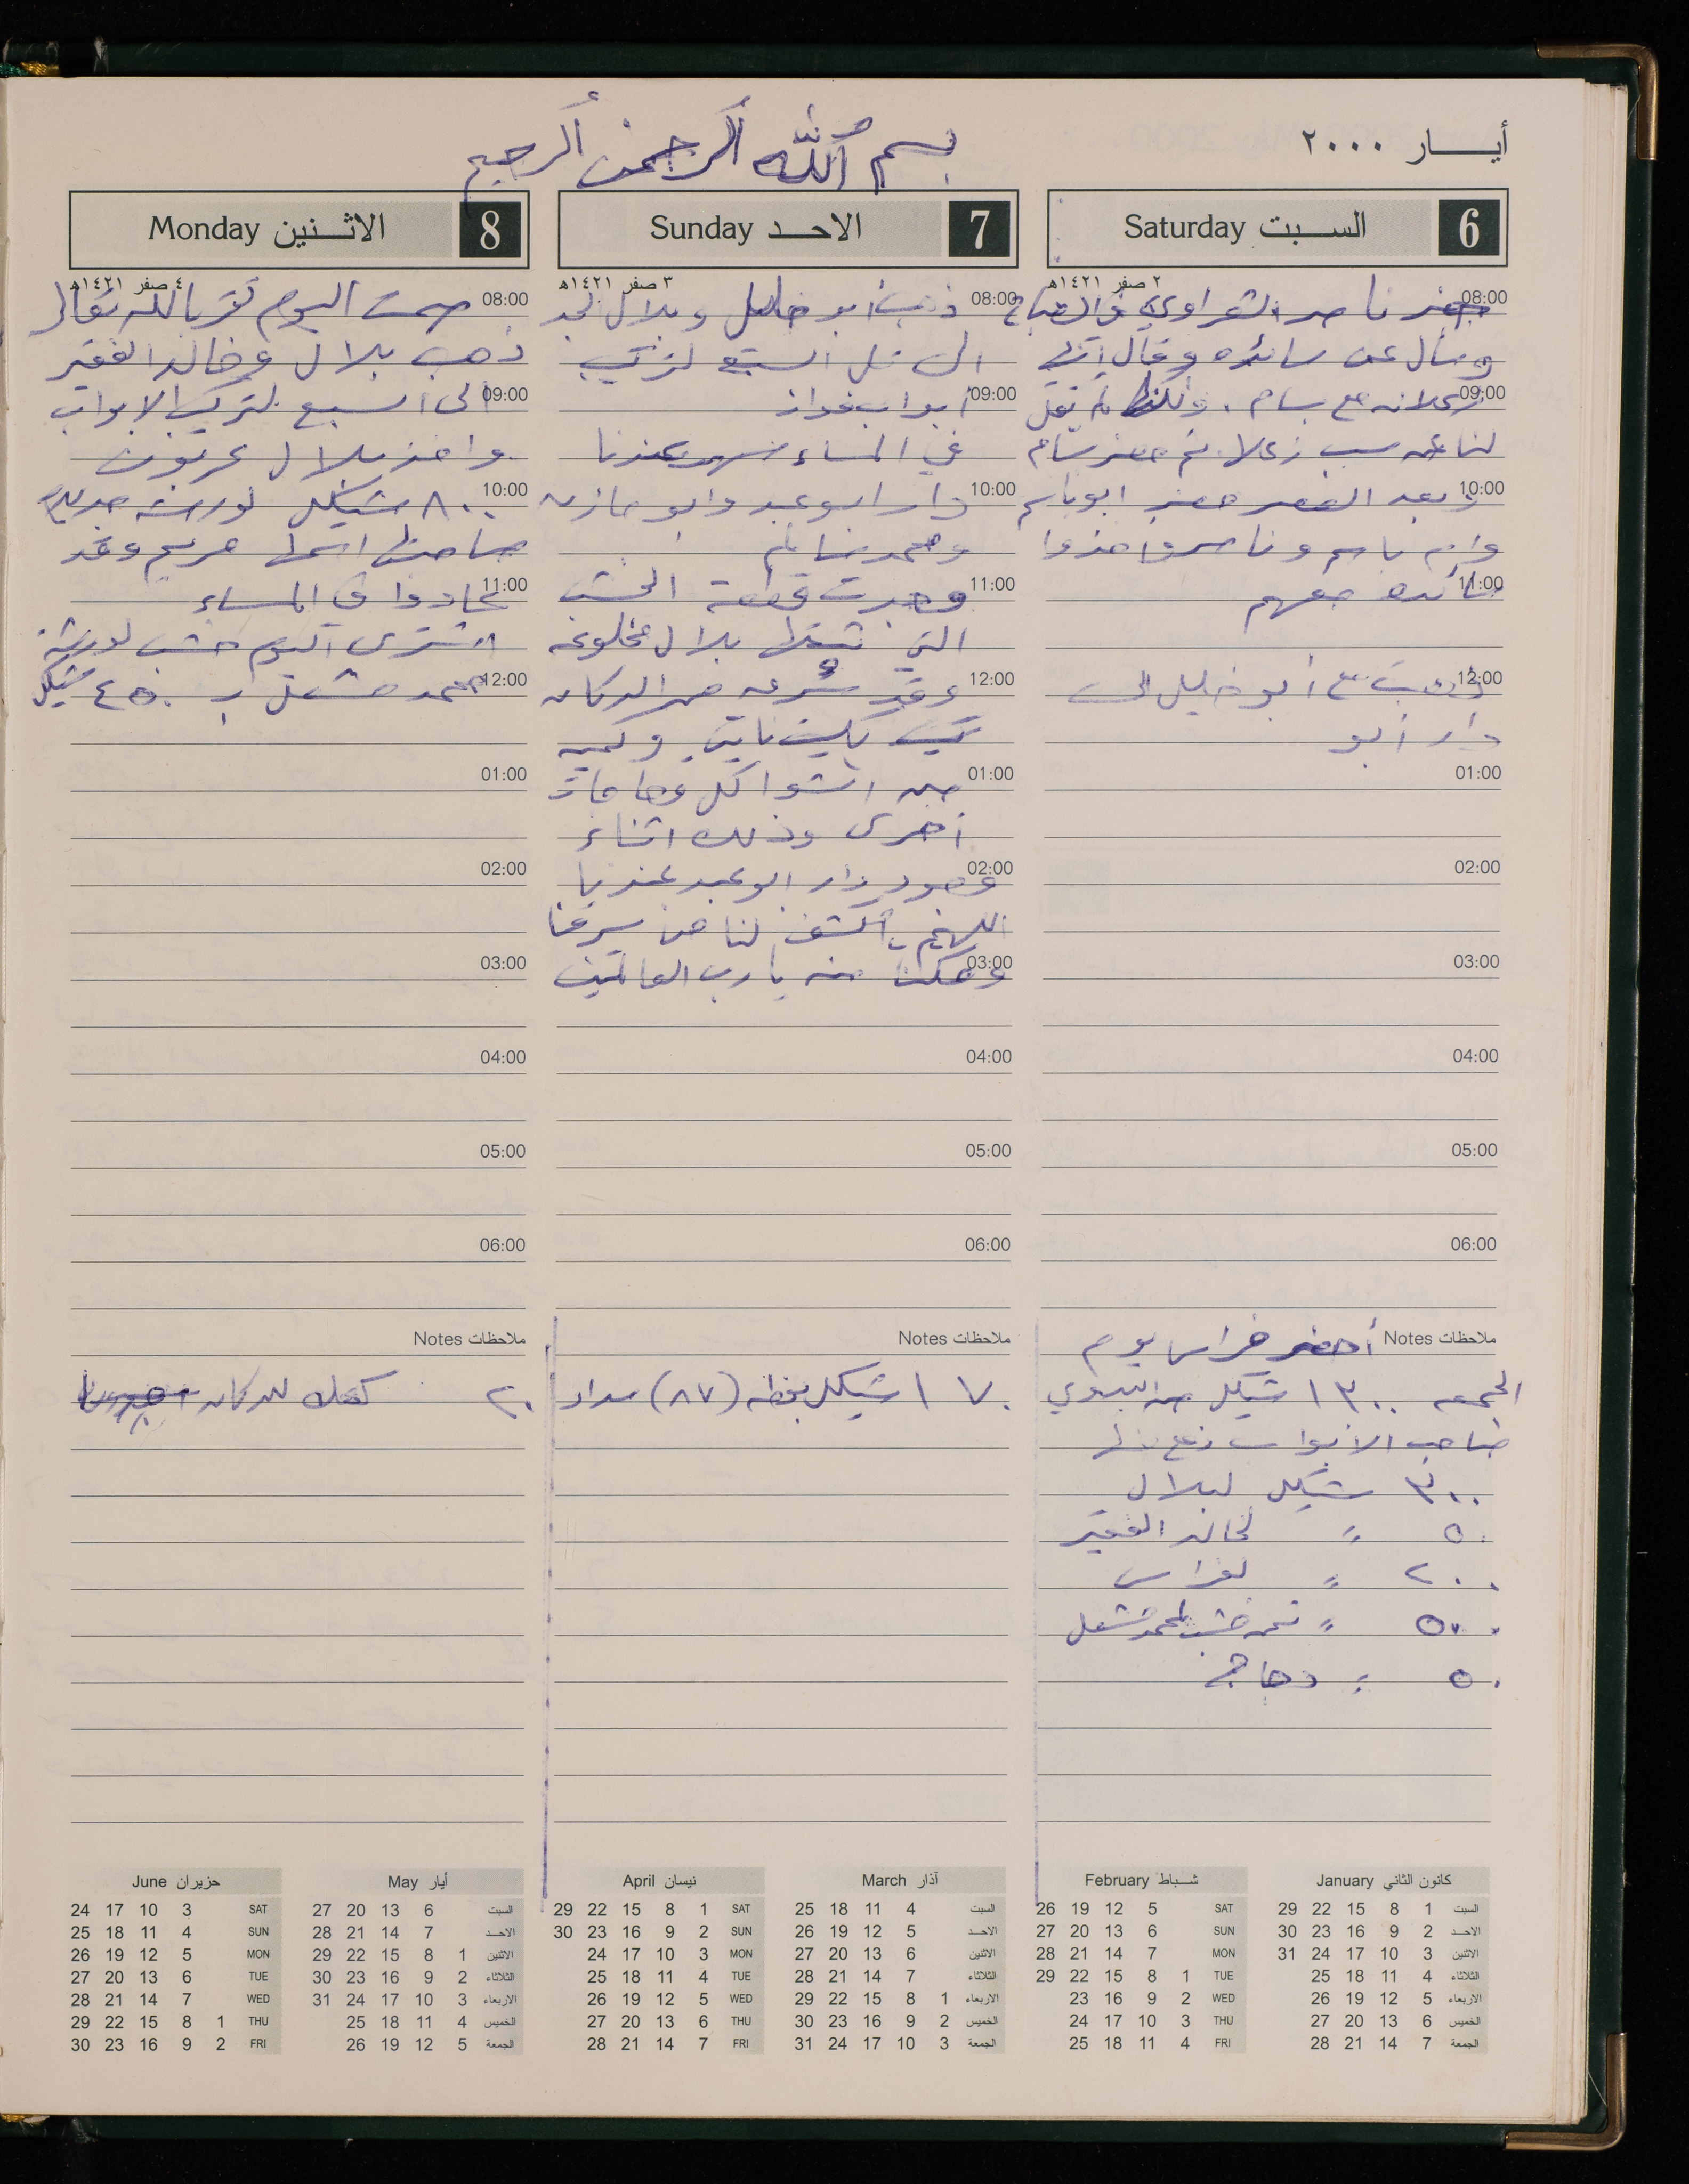 أيـــار ٢٠٠٠
بسم الله الرحمن الرحيم
6 السبت Saturday
٢ صفر ١٤٢١هـ
08:00 حضر ناصر الشعراوي في الصباح
وسأل عن سائده وقال أنها
09:00 زعلانه مع بسام . ولكنها لم تقل
لنا عن سبب زعلا ثم حضر بسام
10:00 وبعد العصر حضر ابو باسم
وام باسم وناصر واخذوا
11:00 سائده معهم
12:00 ذهبت مع أبو خليل الى
دار أبو
01:00
02:00
03:00
04:00
05:00
06:00
ملاحظات Notes أحضر فراس يوم
الجمعه ١٣٠٠ شيكل من
صاحب الأبواب
٣٠٠ شيكل لبلال
٥٠ " لخالد الفقير
٢٠٠ " لفراس
٥٠٠ " ثمن خشب لمحمد مشعل
٥٠ " دجاج
7 الاحـد Sunday
٣ صفر ١٤٢١هـ
08:00 ذهب أبو خليل وبلال
الى السبع لتركيب
09:00 أبواب
في المساء سهر عندنا
10:00 دار ابو عبد وابو مازن
ومحمد
11:00 وجدت قطعة الخشب
التي بلال مخلوعه
12:00 وقد سرق من الدكان
وكميه
01:00 من الشوا كل وحاجات
أخرى وذلك اثناء
02:00 وجود دار ابو عبد عندنا
اللهم اكشف لنا من سرقنا
03:00 ومكنا منه يا رب العالمين
04:00
05:00
06:00
ملاحظات Notes
١٧٠ شيكل (٨٧) سداد
8 الاثـنين Monday
٤ صفر ١٤٢١هـ
08:00 صمت اليوم تقربا لله تعالى
ذهب بلال وخالد الفقير
09:00 الى السبع لتركيب الابواب
واخذ بلال عربون
10:00 ٨٠٠ شيكل لورشه جديده
صاحبتها اسمها مريم وقد
11:00 عادوا في المساء
اشترى اليوم خشب لورشة
12:00 محمد مشعل بـ ٤٥٠ شيكل
01:00
02:00
03:00
04:00
05:00
06:00
ملاحظات Notes
٢٠ كعك للدكان
كانون الثاني January
السبت 1 8 15 22 29
الاحـد 2 9 16 23 30
الاثنين 3 10 17 24 31
الثلاثاء 4 11 18 25
الاربعاء 5 12 19 26
الخميس 6 13 20 27
الجمعة 7 14 21 28
شـباط February
SAT 5 12 19 26
SUN 6 13 20 27
MON 7 14 21 28
TUE 1 8 15 22 29
WED 2 9 16 23
THU 3 10 17 24
FRI 4 11 18 25
آذار March
السبت 4 11 18 25
الاحـد 5 12 19 26
الاثنين 6 13 20 27
الثلاثاء 7 14 21 28
الاربعاء 1 8 15 22 29
الخميس 2 9 16 23 30
الجمعة 3 10 17 24 31
نيسان April
SAT 1 8 15 22 29
SUN 2 9 16 23 30
MON 3 10 17 24
TUE 4 11 18 25
WED 5 12 19 26
THU 6 13 20 27
FRI 7 14 21 28
أيار May
السبت 6 13 20 27
الاحـد 7 14 21 28
الاثنين 1 8 15 22 29
الثلاثاء 2 9 16 23 30
الاربعاء 3 10 17 24 31
الخميس 4 11 18 25
الجمعة 5 12 19 26
حزيران June
SAT 3 10 17 24
SUN 4 11 18 25
MON 5 12 19 26
TUE 6 13 20 27
WED 7 14 21 28
THU 1 8 15 22 29
FRI 2 9 16 23 30